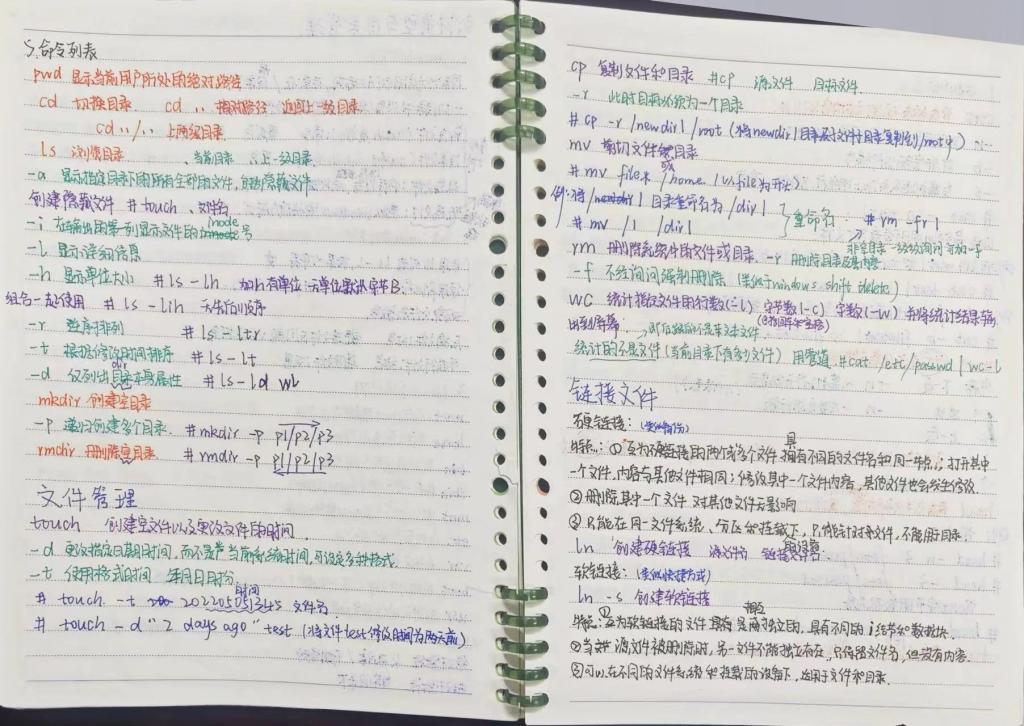 5.命令列表
pwd 显示当前用户所处的绝对路径
cd 切换目录 cd .. 相对路径 返回上一级目录
cd ../.. 上两级目录
ls 浏览目录 . 当前目录 .. 上一级目录
-a 显示指定目录下的所有全部的文件,包括隐藏文件
创建隐藏文件 #touch .文件名
-i 在输出的第一列显示文件的inode号
-l 显示详细信息
-h 显示单位大小 #ls -lh 加h有单位:无单位默认字节B.
组合一起使用 #ls -lih 无先后顺序
-r 逆序排列 #ls -ltr
-t 根据修改时间排序 #ls -lt
-d 仅列出目录本身属性 #ls -ld
mkdir 创建空目录
-p 递归创建多个目录. #mkdir -p p1/p2/p3
rmdir 删除空目录. #rmdir -p p1/p2/p3
文件管理
touch 创建空文件以及更改文件的时间.
-d 更改指定日期时间,而不是当前系统时间,可设定多种格式.
-t 使用格式时间 年月日时分
时间
# touch -t 202205051345 文件名
# touch -d "2 days ago" test (将文件test修改时间为两天前)
cp 复制文件和目录 #cp 源文件 目标文件
-r 此时目标必须为一个目录
# cp -r /newdir1 /root (将newdir1目录及子文件子目录复制到/root中)
mv 剪切文件或目录
# mv file* /home (以file为开头)
例:将 /newdir1 目录重命名为 /dir1 } 重命名 #rm -fr 1
# mv /1 /dir1
非空目录一级级询问 可加-f
rm 删除系统中的文件或目录. -r 删除目录及其内容
-f 不经询问强制删除 (类似于windows shift delete)
wc 统计指定文件中的行数(-l) 字节数(-c) 字数(-w) 并将统计结果输
出到屏幕
统计的不是文件(当前目录下有多少文件) 用管道 #cat /etc/passwd | wc -l
链接文件
硬链接: (类似备份)
特点:① 互为硬链接的两个或多个文件 拥有不同的文件名和同一节点,打开其中
一个文件,内容与其他文件相同;修改其中一个文件内容,其他文件也会发生修改.
②删除其中一个文件 对其他文件无影响
③只能在同一文件系统、分区和挂载下,只能针对文件,不能用于目录.
ln 创建硬链接 源文件名 链接文件名
软链接: (类似快捷方式)
ln -s 创建软链接
特点:①互为软链接的文件 是两个独立的,具有不同的i结节和数据块.
②当源文件被删除时,另一文件不能独立存在,只保留文件名,但没有内容.
③可以在不同的文件系统和挂载的设备下,适用于文件和目录.